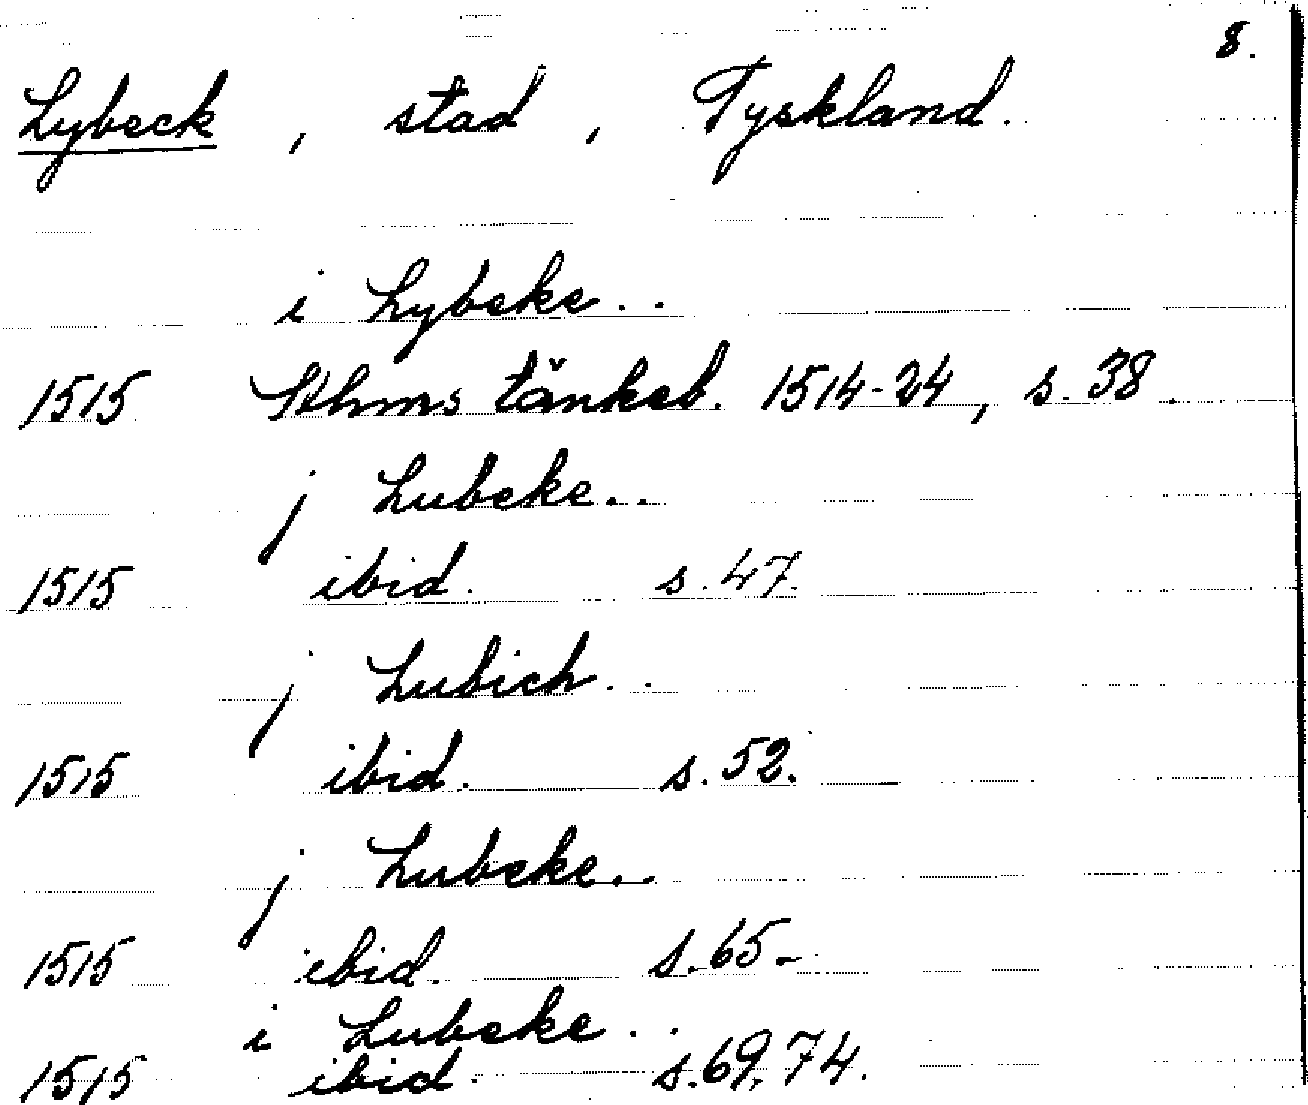 8.
Lybeck, stad, Tyskland.
i Lybeke..
1515 Sthms tänkeb. 1514-24, s. 38.
j Lubeke..
1515 ibid. s. 47.
j Lubich..
1515 ibid. s. 52.
j Lubeke..
1515 ibid. s. 65.
i Lubeke..
1515 ibid. s. 69, 74.